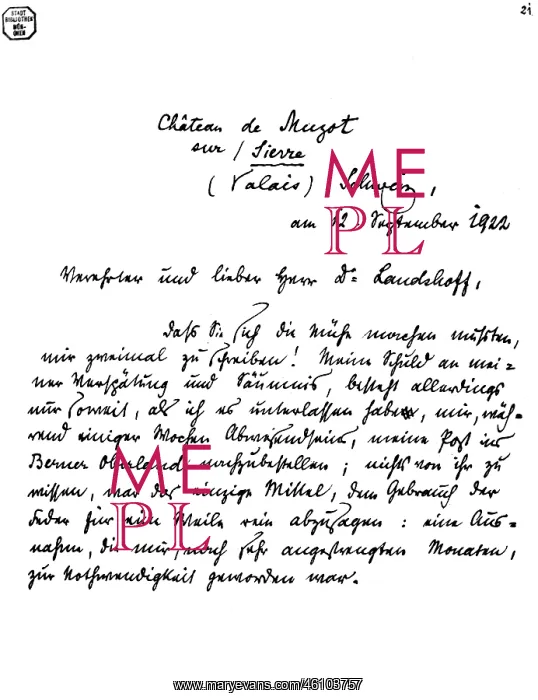 STADT
BIBLIOTHEK
MÜN-
CHEN
21
Château de Muzot
sur / Sierre
(Valais) Schweiz,
am 12. September 1922
Verehrter und lieber Herr Dr. Landshoff,
daß Sie sich die Mühe machen mußten,
mir zweimal zu schreiben! Meine Schuld an mei=
ner Verspätung und Säumnis, besteht allerdings
nur soweit, als ich es unterlassen habe, mir, wäh=
rend einiger Wochen Abwesendseins, meine Post ins
Berner Oberland nachzubestellen; nichts von ihr zu
wissen, war das einzige Mittel, dem Gebrauch der
Feder für eine Weile rein abzusagen: eine Aus=
nahm, die mir, nach sehr angestrengten Monaten,
zur Nothwendigkeit geworden war.
ME
PL
ME
PL
www.maryevans.com/46103757